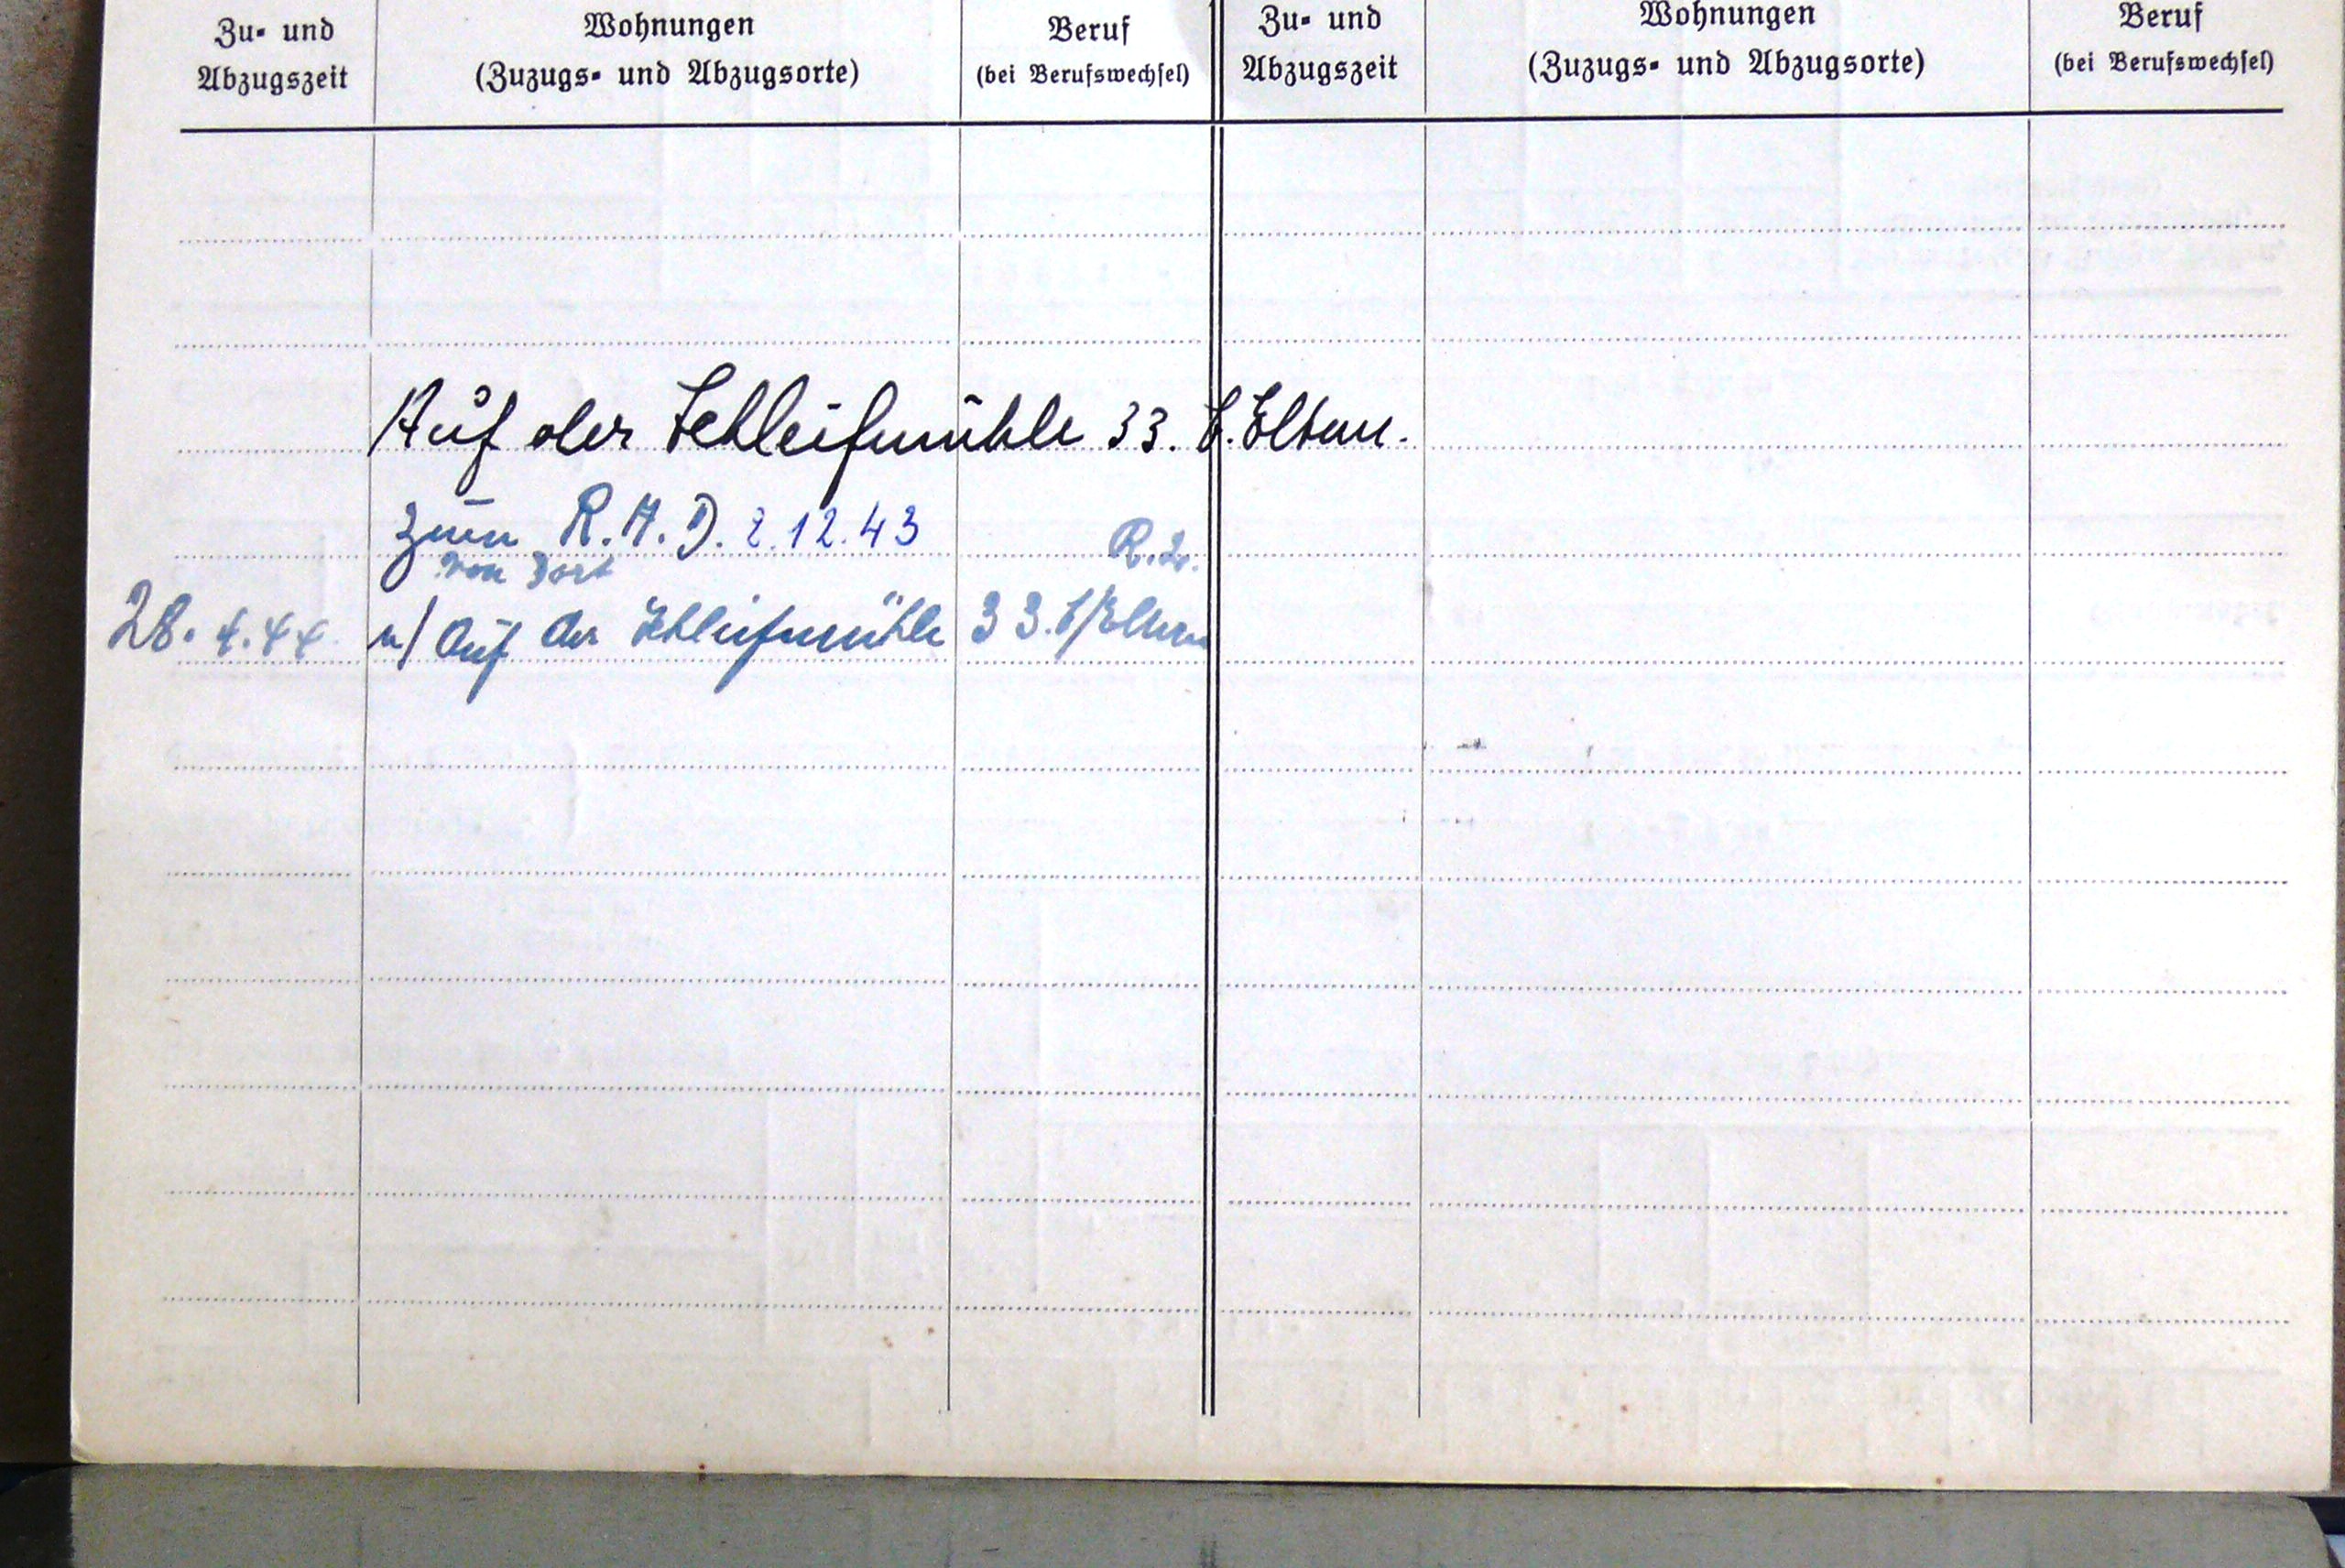 Zu- und Abzugszeit
Wohnungen
(Zuzugs- und Abzugsorte)
Beruf
(bei Berufswechsel)
Zu- und Abzugszeit
Wohnungen
(Zuzugs- und Abzugsorte)
Beruf
(bei Berufswechsel)
Auf der Schleifmühle 33. b. Eltern.
zum R.A.D. 2.12.43
von dort
28.4.44 n/ Auf der Schleifmühle 33. b/Eltern